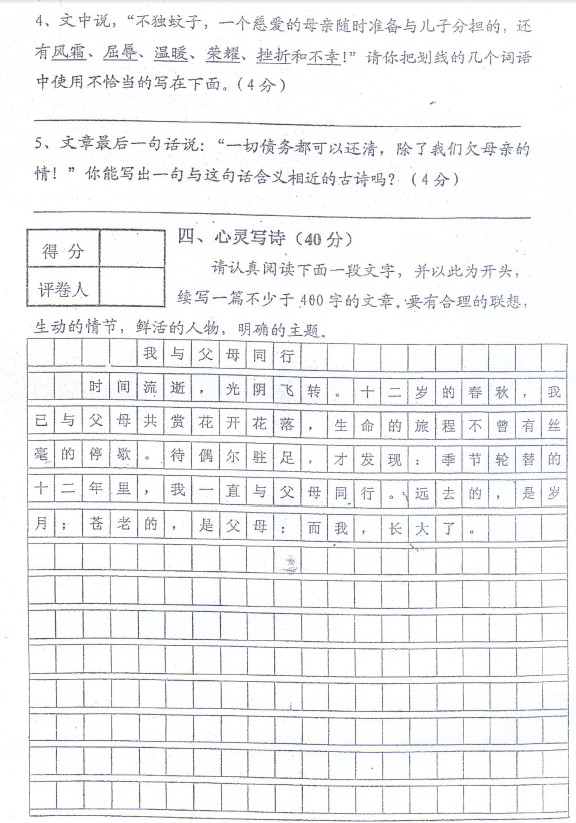 4、文中说，“不独蚊子，一个慈爱的母亲随时准备与儿子分担的，还
有风霜、屈辱、温暖、荣耀、挫折和不幸！”请你把划线的几个词语
中使用不恰当的写在下面。（4分）
5、文章最后一句话说：“一切债务都可以还清，除了我们欠母亲的
情！”你能写出一句与这句话含义相近的古诗吗？（4分）
得分
评卷人
四、心灵写诗（40分）
请认真阅读下面一段文字，并以此为开头，
续写一篇不少于400字的文章。要有合理的联想，
生动的情节，鲜活的人物，明确的主题。
我与父母同行
时间流逝，光阴飞转。十二岁的春秋，我
已与父母共赏花开花落，生命的旅程不曾有丝
毫的停歇。待偶尔驻足，才发现：季节轮替的
十二年里，我一直与父母同行。远去的，是岁
月；苍老的，是父母；而我，长大了。